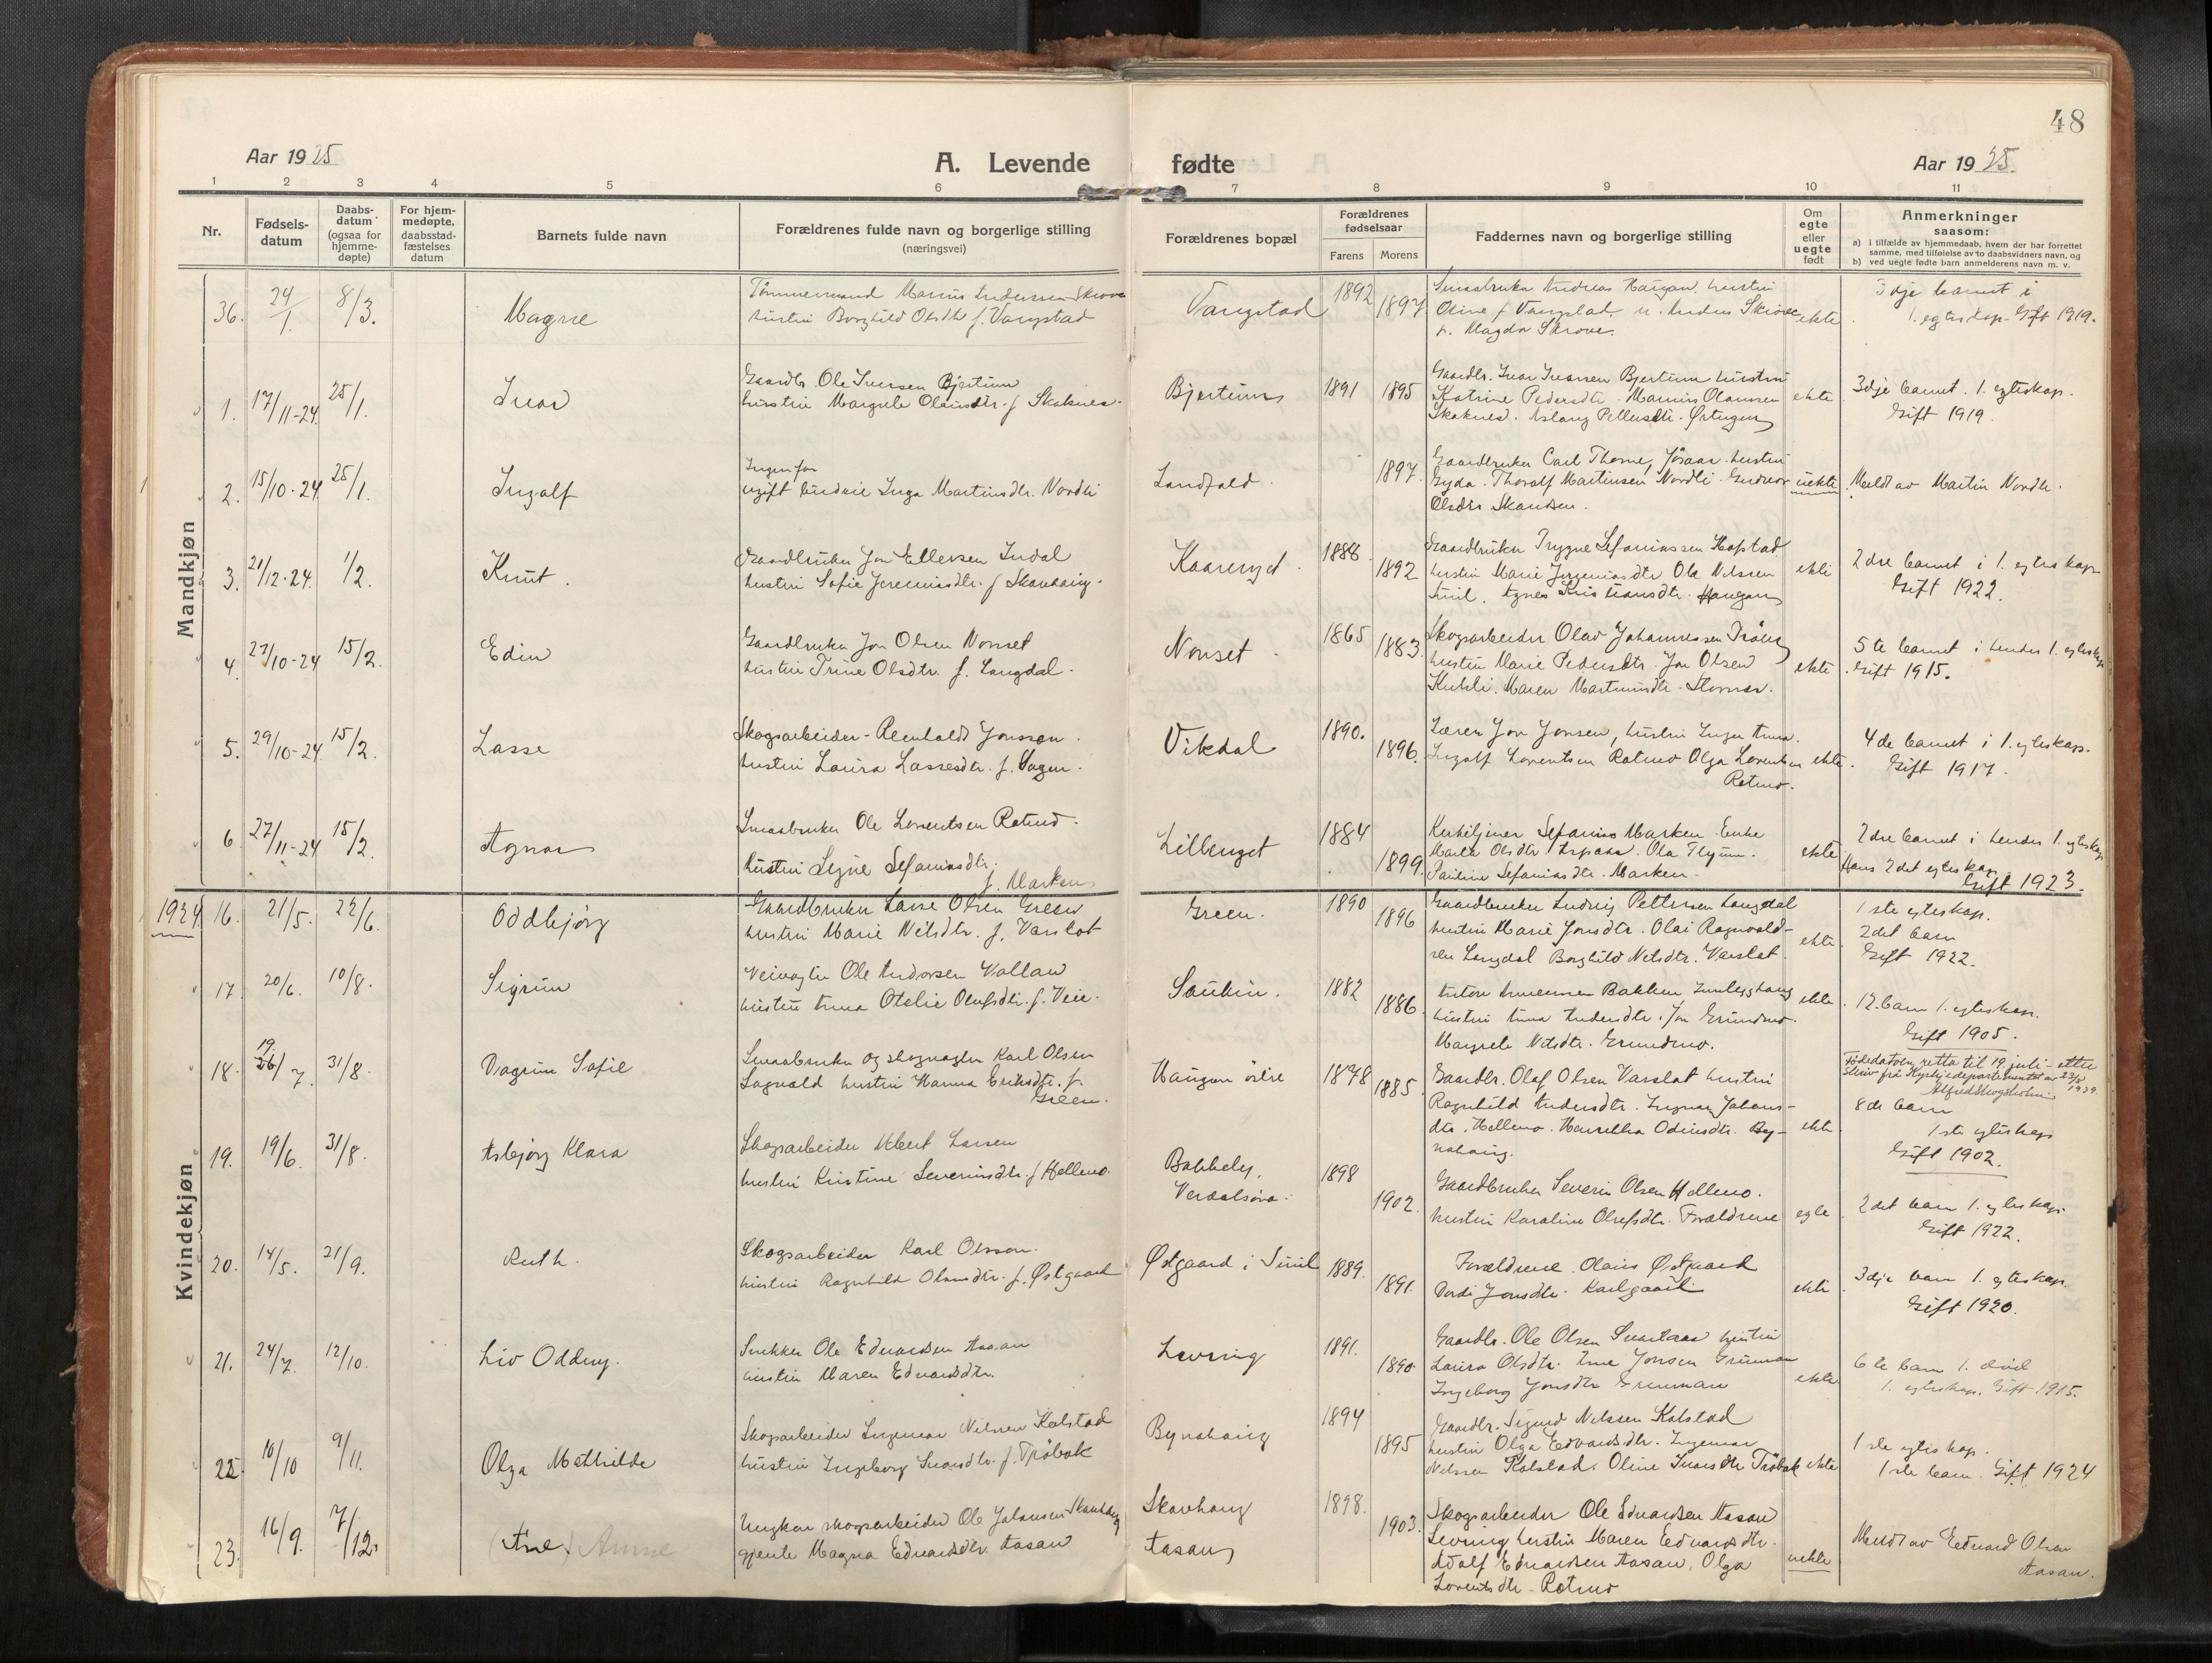 48
Aar 1925
A. Levende fødte
Aar 1925.
1 2 3 4 5 6 7 8 9 10 11
Nr.
Fødsels-
datum
Daabs-
datum
(ogsaa for
hjemme-
døpte)
For hjem-
medøpte,
daabsstad-
fæstelses
datum
Barnets fulde navn
Forældrenes fulde navn og borgerlige stilling
(næringsvei)
Forældrenes bopæl
Forældrenes
fødselsaar
Farens Morens
Faddernes navn og borgerlige stilling
Om
egte
eller
uegte
født
Anmerkninger
saasom:
a) i tilfælde av hjemmedaab, hvem der har forrettet
samme, med tilføielse av to daabsvidners navn, og
b) ved uegte fødte barn anmelderens navn m. v.
Mandkjøn
36. 24/1. 8/3. Magne
Tømmermand Marius Andersen Skrove
hustru Borghild Olsdtr f. Vangstad
Vangstad 1892 1897
Smaabruker Andreas Haugan. hustru
Oline f Vangstad u. Anders Skrove
p. Magda Skrove.
ekte
3dje barnet i
1. egteskap. Gift 1919.
1. 17/11-24. 25/1. Ivar
Gaardbr. Ole Iversen Bjertum
hustru Margrete Olausdtr. f Skaknes.
Bjertum 1891 1895
Gaardbr. Ivar Iversen Bjertum hustru
Katrine Pedersdtr. Marius Olaussen
Skaknes. Aslaug Pettersdtr. Ørtugen
ekte
3dje barnet. 1. egteskap.
Gift 1919.
2. 15/10-24. 25/1. Ingolf
Ingen far
ugift budeie Inga Martinsdtr. Nordli
Landfald. 1897.
Gaardbruker Carl Thorne, hustru
Gyda. Thoralf Martinsen Nordli. Gudrun
Olsdtr Skansen.
uekte
Meldt av Martin Nordli.
3. 21/12-24. 1/2. Knut.
Gaardbruker Jon Ellevsen Indal
hustru Sofie Jeremiasdtr. f Skavhaug.
Kaarenget. 1888. 1892
Gaardbruker Trygve Sefaniassen Hofstad
hustru Marie Jeremiasdtr Ole Nilssen
Suul. Agnes Kristiansdtr. Haugan
ekte
2dre barnet i 1. egteskap
Gift 1922.
4. 27/10-24 15/2. Edin
Gaardbruker Jon Olsen Nonset
hustru Trine Olsdtr. f. Langdal.
Nonset. 1865 1883.
Skogsarbeider Olav Johannessen
hustru Marie Pedersdtr. Jon Olsen
Kuhli. Maren Martinsdtr.
ekte
5te barnet i hendes 1. egteskap
Gift 1915.
5. 29/10-24 15/2. Lasse
Skogsarbeider - Reinholdt Jonsson.
hustru Laura Lassesdtr. f. Vagen.
Vikdal 1890. 1896.
Lærer Jon Jonsen, hustru Inger Anna.
Ingolf Lorentsen Rotmo Olga Lorentsen
Rotmo.
ekte.
4de barnet i 1. egteskap.
Gift 1917.
6. 27/11-24 15/2. Agnar
Smaabruker Ole Lorentsen Rotmo.
hustru Signe Sefaniasdtr.
f. Marken
Lillenget 1884 1899.
Kirketjener Sefanias Marken. Enke
Marta Olsdtr. Ola
Pauline Sefaniasdtr. Marken.
ekte
2dre barnet i hendes 1. egteskap
Hans 2det egteskap.
Gift 1923.
Kvindekjøn
1924. 16. 21/5. 22/6. Oddbjørg
Gaardbruker Lasse Olsen Green
hustru Marie Nilsdtr. f. Varslot
Green. 1890 1896
Gaardbruker Ludvig Pettersen Langdal
hustru Marie Jonsdtr. Olai Ragnvald-
sen Langdal Borghild Nilsdtr. Varslot.
ekte
1ste egteskap.
2det barn
Gift 1922.
17. 20/6. 10/8. Sigrun
Veivogter Ole Andorsen Vollan
hustru Anna Otelie Olufsdtr. f. Veie.
Saukin. 1882 1886.
Anton Bakken,
hustru Anna Andersdtr. Jon Grundmo.
Margrete Nilsdtr. Grundmo.
ekte.
12. barn 1. egteskap.
Gift 1905.
18. 19. 26/7. 31/8. Dagrun Sofie
Smaabruker og skogvogter Karl Olsen
Sagvold hustru Hanna Eriksdtr. f.
Green.
Haugan østre 1878 1885
Gaardbr. Olaf Olsen Varslot hustru
Ragnhild Andersdtr. Ingvar Johans-
dtr. Helleno. Odinsdtr. By-
nahaug.
ekte
Fødedatoen retta til 19 juli - etter
skriv frå Kyrkjedepartementet av 23/8 1939.
Alfred Skogsholm
8de barn
1ste egteskap
Gift 1902.
19. 19/6. 31/8. Asbjørg Klara
Skogsarbeider Albert Larsen
hustru Kristine Severinsdtr. f Helleno.
Bakkely,
Verdalsøra. 1898 1902.
Gaardbruker Severin Olsen Helleno.
hustru Karoline Olufsdtr. Forældrene
egte
2det barn 1. egteskap.
Gift 1922.
20. 14/5. 21/9. Ruth.
Skogsarbeider Karl Olsson.
hustru Ragnhild Olausdtr. f. Østgaard
Østgaard i Suul 1889. 1891.
Forældrene. Olaus Østgaard
Jonsdtr. Karlgaard
ekte
3dje barn 1. egteskap.
Gift 1920.
21. 24/7. 12/10. Liv Oddny.
Snekker Ole Edvardsen Aasan
hustru Maren Edvardsdtr.
Levring 1891. 1890.
Gaardbr. Ole Olsen hustru
Laura Olsdtr. Jonsen Grunman
Ingeborg Jonsdtr Grunman
ekte
6te barn
1. egteskap. Gift 1915.
22. 10/10 9/11. Olga Mathilde
Skogsarbeider Ingemar Nilssen Kolstad
hustru Ingeborg Ivarsdtr. f. Trøbak
Bynahaug 1894 1895
Gaardbr. Sigurd Nilssen Kolstad
hustru Olga Edvardsdtr. Ingemar
Nilssen Kolstad. Oline Ivarsdtr Trøbak
ekte
1ste egteskap.
1ste barn. Gift 1924
23. 16/9. 7/12. (Ane) Anne
Ungkar skogsarbeider Ole Johansen Skavhaug
gjente Magna Edvardsdtr. Aasan
Skavhaug
Aasan 1898. 1903.
Skogsarbeider Ole Edvardsen Aasan
Levring hustru Maren Edvardsdtr.
Adolf Edvardsen Aasan. Olga
Lorentsdtr - Rotmo
uekte
Meldt av Edvard Olsen
Aasan.